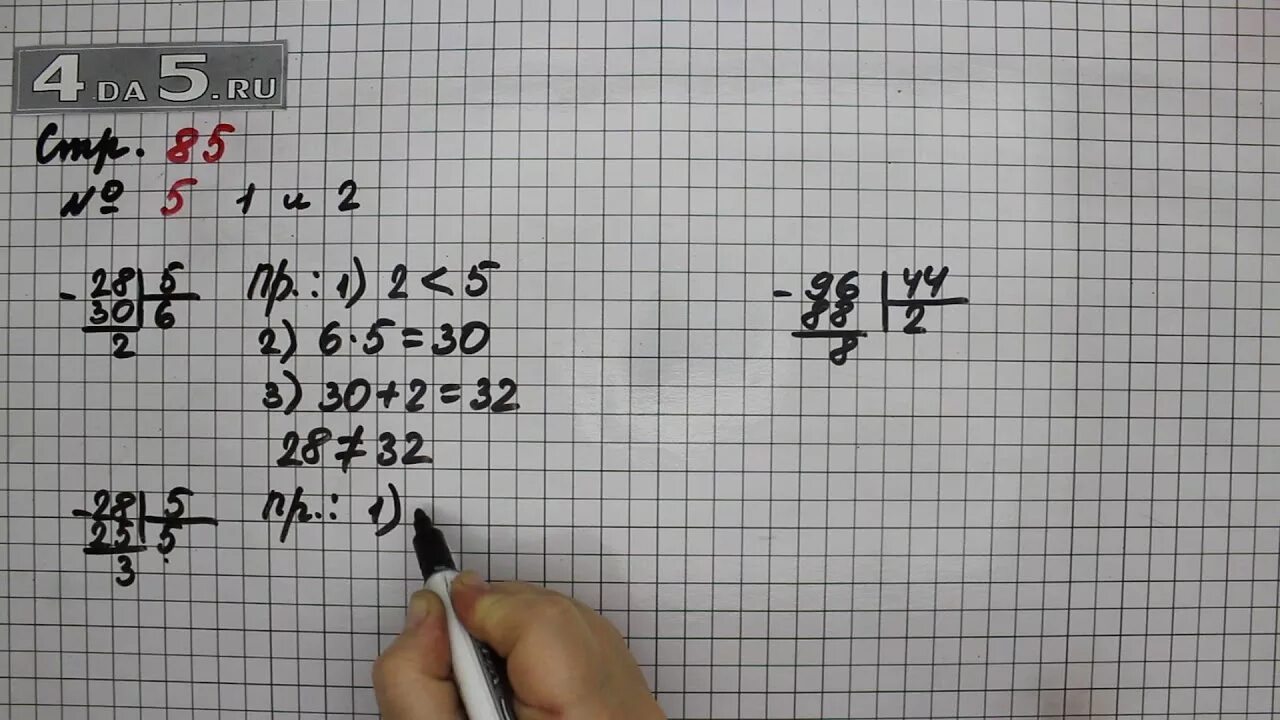 4DA5.RU
Стр. 85
№ 5 1 и 2
- 28 | 5
30 | 6
2
пр.: 1) 2 < 5
2) 6 · 5 = 30
3) 30 + 2 = 32
28 ≠ 32
- 28 | 5
25 | 5
3
пр.: 1)
- 96 | 44
88 | 2
8